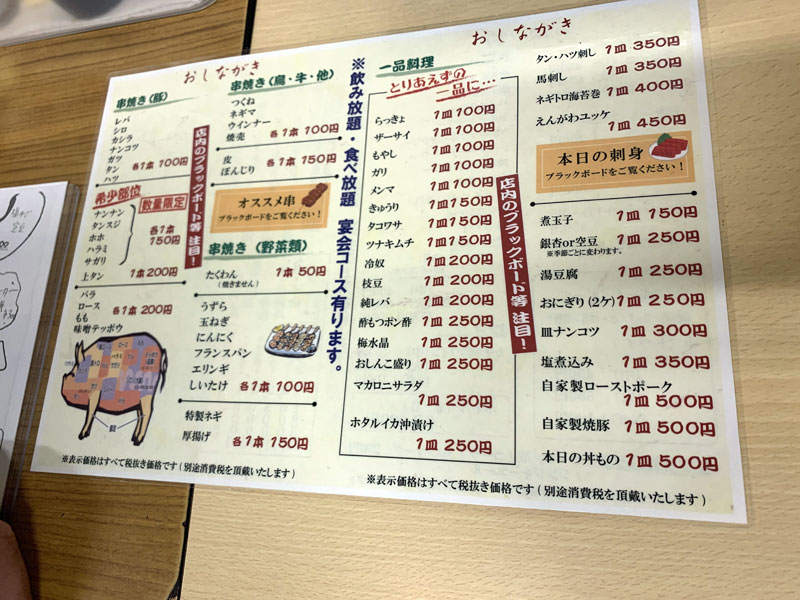 おしながき
串焼き(豚)
レバ
シロ
カシラ
ナンコツ
ガツ
タン
ハツ
各1本 100円
希少部位
数量限定
ナンナン
タンスジ
ホホ
ハラミ
サガリ
各1本
150円
上タン 1本 200円
バラ
ロース
もも
味噌テッポウ
各1本 200円
店内のブラックボード等 注目!
串焼き(鳥・牛・他)
つくね
ネギマ
ウインナー
焼売
各1本 100円
皮
ぼんじり
各1本 150円
オススメ串
ブラックボードをご覧ください!
串焼き(野菜類)
たくわん 1本 50円
(焼きません)
うずら
玉ねぎ
にんにく
フランスパン
エリンギ
しいたけ 各1本 100円
特製ネギ
厚揚げ 各1本 150円
※表示価格はすべて税抜き価格です(別途消費税を頂戴いたします)
※飲み放題・食べ放題 宴会コース有ります。
おしながき
一品料理
とりあえずの
一品に…
らっきょ 1皿 100円
ザーサイ 1皿 100円
もやし 1皿 100円
ガリ 1皿 100円
メンマ 1皿 100円
きゅうり 1皿 150円
タコワサ 1皿 150円
ツナキムチ 1皿 150円
冷奴 1皿 200円
枝豆 1皿 200円
純レバ 1皿 200円
酢もつポン酢 1皿 250円
梅水晶 1皿 250円
おしんこ盛り 1皿 250円
マカロニサラダ
1皿 250円
ホタルイカ沖漬け
1皿 250円
店内のブラックボード等 注目!
タン・ハツ刺し 1皿 350円
馬刺し 1皿 350円
ネギトロ海苔巻 1皿 400円
えんがわユッケ
1皿 450円
本日の刺身
ブラックボードをご覧ください!
煮玉子 1皿 150円
銀杏or空豆 1皿 250円
※季節ごとに変わります。
湯豆腐 1皿 250円
おにぎり(2ケ) 1皿 250円
皿ナンコツ 1皿 300円
塩煮込み 1皿 350円
自家製ローストポーク
1皿 500円
自家製焼豚 1皿 500円
本日の丼もの 1皿 500円
※表示価格はすべて税抜き価格です(別途消費税を頂戴いたします)